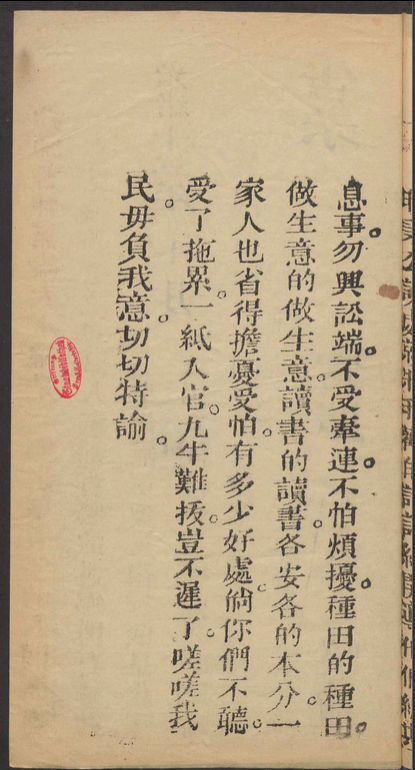 息事勿興訟端。不受牽連。不怕煩擾。種田的種田。
做生意的做生意。讀書的讀書。各安各的本分。一
家人也省得擔憂受怕。有多少好處。倘你們不聽。
受了拖累。一紙入官。九牛難拔。豈不遲了。嗟嗟我
民。毋負我意。切切特諭。